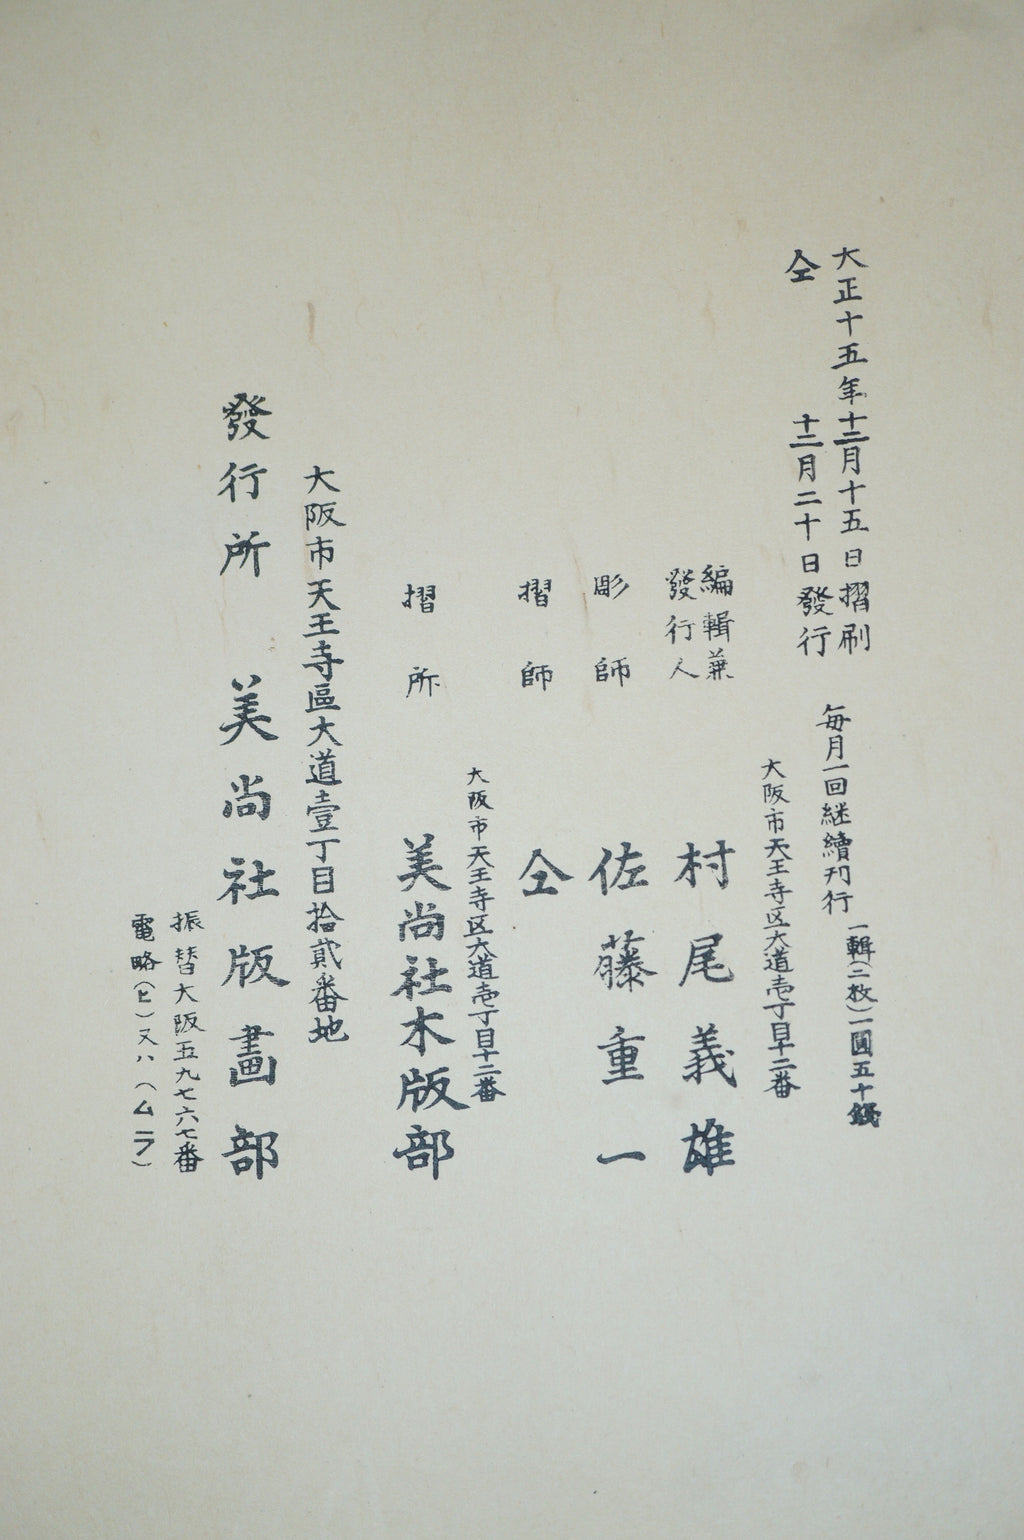 大正十五年十二月十五日摺刷
仝 十二月二十日發行
毎月一回継續刊行
一輯(二枚)一圓五十錢
大阪市天王寺区大道壱丁目十二番
編輯兼
發行人 村尾義雄
彫師 佐藤重一
摺師 仝
大阪市天王寺区大道壱丁目十二番
摺所 美尚社木版部
大阪市天王寺區大道壹丁目拾貳番地
發行所 美尚社版畫部
振替大阪五九七六七番
電略(ヒ)又ハ(ムラ)